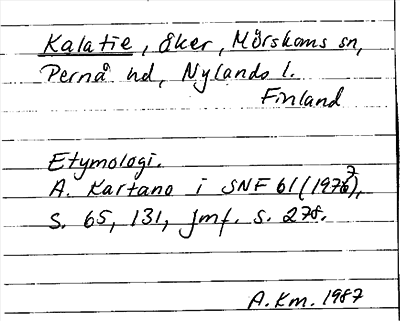 Kalatie, åker, Mörskoms sn,
Pernå hd, Nylands l.
Finland
Etymologi.
A. Kartano i SNF 61 (1976⁷),
s. 65, 131, jmf. s. 278.
A.Km. 1987